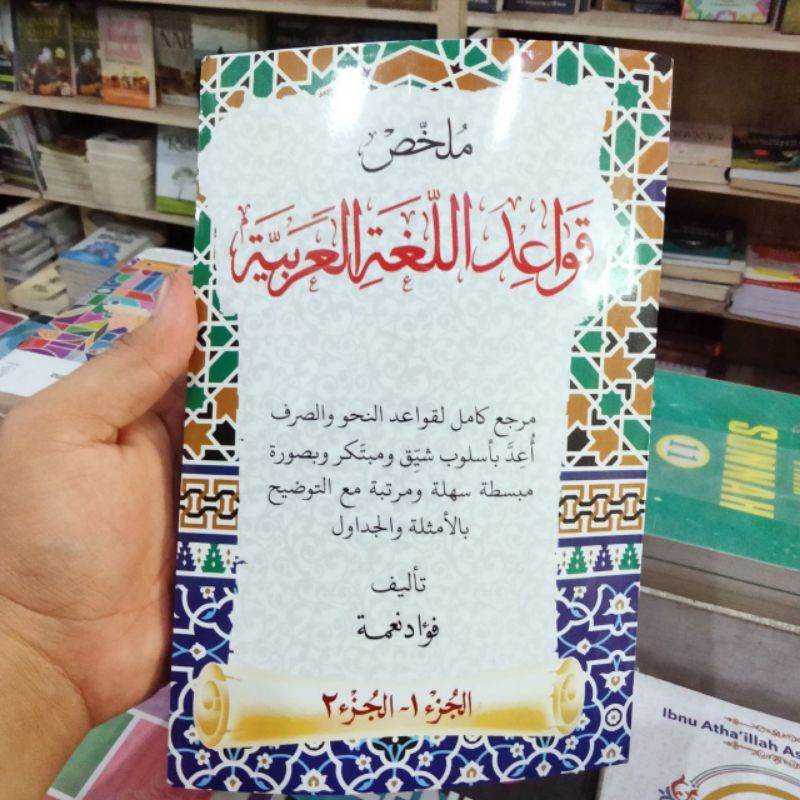 مُلخّص
قَواعِد اللّغَةِ العَرَبيَّة
مرجع كامل لقواعد النحو والصرف
أُعِدَّ بأسلوب شيّق ومبتَكر وبصورة
مبسطة سهلة ومرتبة مع التوضيح
بالأمثلة والجداول
تأليف
فؤاد نعمة
الجُزء ١ - الجُزء ٢
11
SUNNAH
Ibnu Atha'illah As